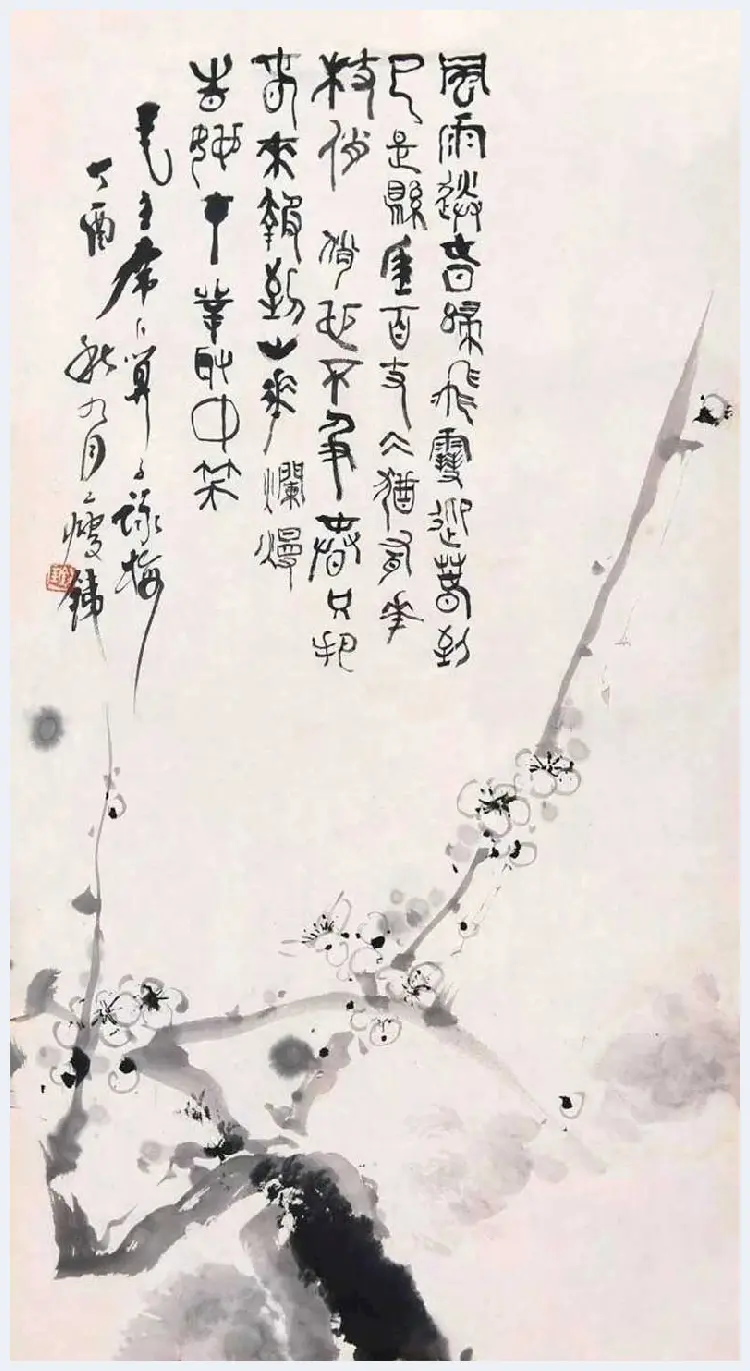 風雨送春歸飛雪迎春到
已是縣崖百丈仌猶有花
枝俏俏也不爭春只把
春來報到山花爛熳
時她在叢中笑
毛主席卜算子詠梅
丁酉秋九月瘦鐵